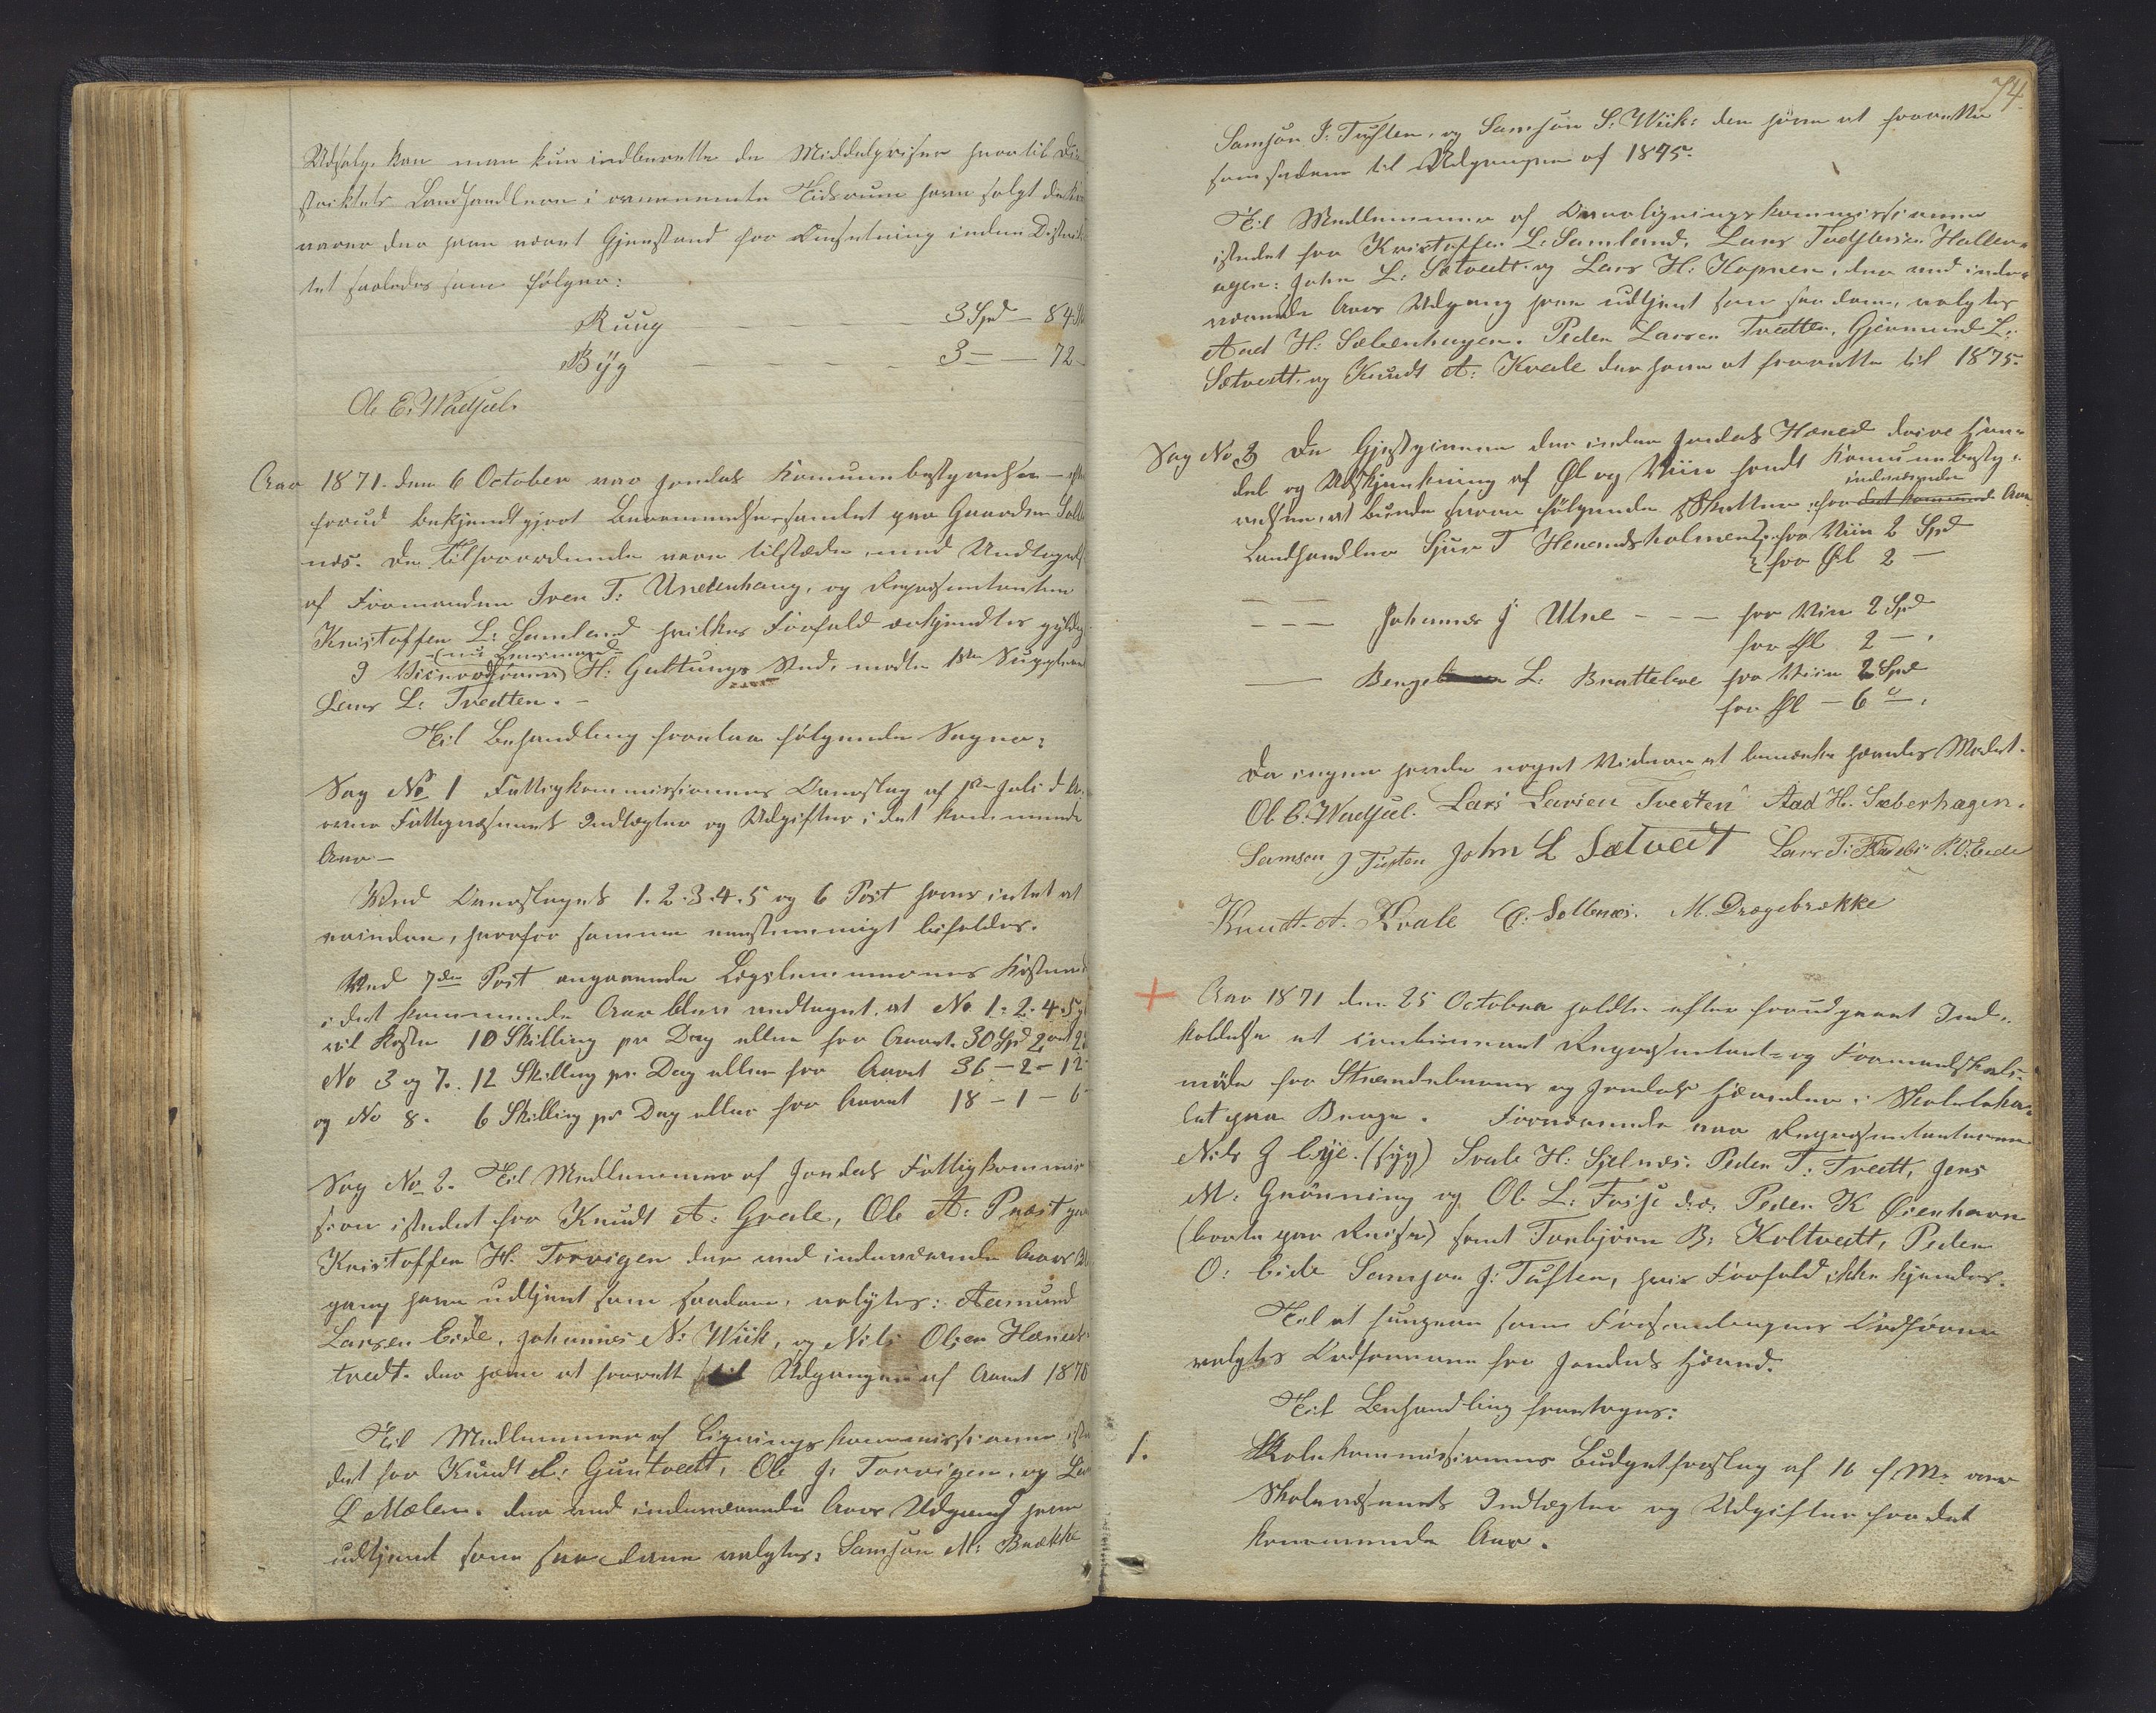 Udsalg. kan man kun indberette de Middelpriser hvortil Di-
striktets Landhandlere i ovennævnte Tidsrum have solgt de Korn
varer der have været Gjenstand for Omsætning inden Distrik
tet saaledes som følger:
Ruug — — — 3 Spd — 84 Sk
Byg — — — 3 — — 72 —
Ole E. Wadsel.
Aar 1871. den 6 October var Jondals Kommunebestyrelse — efter
forud bekjendtgjort Berammelse — samlet paa Gaarden Solle
næs. De Tilforordnede vare tilstæde, med Undtagelse
af Formanden Iver T: Undenhaug, og Repræsentanten
Kristoffer L: Samland hvilkes Forfald ankjendtes gyldig
I Viceordfører (nu Lensmand) H: Guttungs Sted, mødte 1ste Suppleant
Lars L: Tvedten. —
Til Behandling forelaa følgende Sager:
Sag No 1 Fattigkommissionens Overslag af 1ste Juli d. A.
over Fattigvæsenets Indtægter og Udgifter i det kommende
Aar —
Ved Overslagets 1. 2. 3. 4. 5 og 6 Post haves intet at
erindre, hvorfor samme eenstemmigt bifaldes.
Ved 7de Post angaaende Lægslemmernes Kostnad
i det kommende Aar blev vedtaget, at No 1. 2. 4. 5 og
vil koste 10 Skilling pr Dag eller for Aaret 30 Spd 2 ort
No 3 og 7. 12 Skilling pr. Dag eller for Aaret 36 — 2 — 12
og No 8. 6 Skilling pr Dag eller for Aaret 18 — 1 — 6
Sag No 2. Til Medlemmer af Jondals Fattigkommis
sion istedet for Knudt A: Grale, Ole A: Præstgar
Kristoffer H. Torvigen der med indeværende Aars Ud
gang have udtjent som saadan, valgtes: Aamund
Larsen Eide, Johannes N: Wiik, og Nils Olsen Hæreds
tvedt. der have at forrette til Udgangen af Aaret 187
Til Medlemmer af Ligningskommissionen iste
det for Knudt L: Guntvedt, Ole J: Torvigen, og Lars
L Mælen. der med indeværende Aars Udgang have
udtjent som saadanne valgtes: Samson M: Brække
74.
Samson J: Tuften, og Samson S: Wiik: der have at forrette
som saadanne til Udgangen af 1875.
Til Medlemmer af Overligningskommissionen
istedet for Kristoffer L. Samland, Lars Torfinsen Haller-
agen: John L: Sætvedt og Lars H: Kopreen, der med inde-
værende Aars Udgang have udtjent som saadanne, valgtes
Aad H: Sæberhagen. Peder Larsen Tvedten, Gjermund L:
Sætvedt, og Knudt A: Kvale der have at forrette til 1875.
Sag No 3 De Gjestgivere der inden Jondals Hæred drive Han-
del og Udskjænkning af Øl og Viin fandt Kommunebesty-
relsen, at burde svare følgende Skatter for det kommende indeværende Aar
Landhandler Sjur T Herandsholmen for Viin 2 Spd
for Øl 2 —
— — — Johannes J Utne — — — for Viin 2 Spd
for Øl 2 — .
—— Bengt L: Brattebøe for Viin 2 Spd
for Øl — 6 — .
Da ingen havde noget Videre at bemærke hævdes Mødet.
Ol. E. Wadsel. Lars Larsen Tvedten Aad H. Sæberhagen.
Samson J Tuften John L Sætvedt Lars T: P. O: Eide
Knudt. A. Kvale O: Sollenæs. M. Drægebrække
+ Aar 1871 den 25 October holdtes efter forudgaaet Ind-
kaldelse et combineret Repræsentant- og Formandskabs-
møde for Strandebarms og Jondals Hæreder i Skoleloka-
let paa Berge. Fraværende var Repræsentanterne
Nils J Eye. (syg) Svale H: Hjelnæs. Peder T: Tvedt, Jens
M: Grønning og Ole L: Fosse d. æ. Peder K Øienhavn
(borte paa Reiser) samt Torbjørn B: Koltvedt, Peder
O: Eide Samson J: Tuften, hvis Forfald ikke kjendes.
Til at fungere som Forsamlingens Ordfører
valgtes Ordføreren for Jondals Hæred.
Til Behandling foretoges:
1. Skolekommissionens Budgetforslag af 16 f. M. over
Skolevæsenets Indtægter og Udgifter for det
kommende Aar.